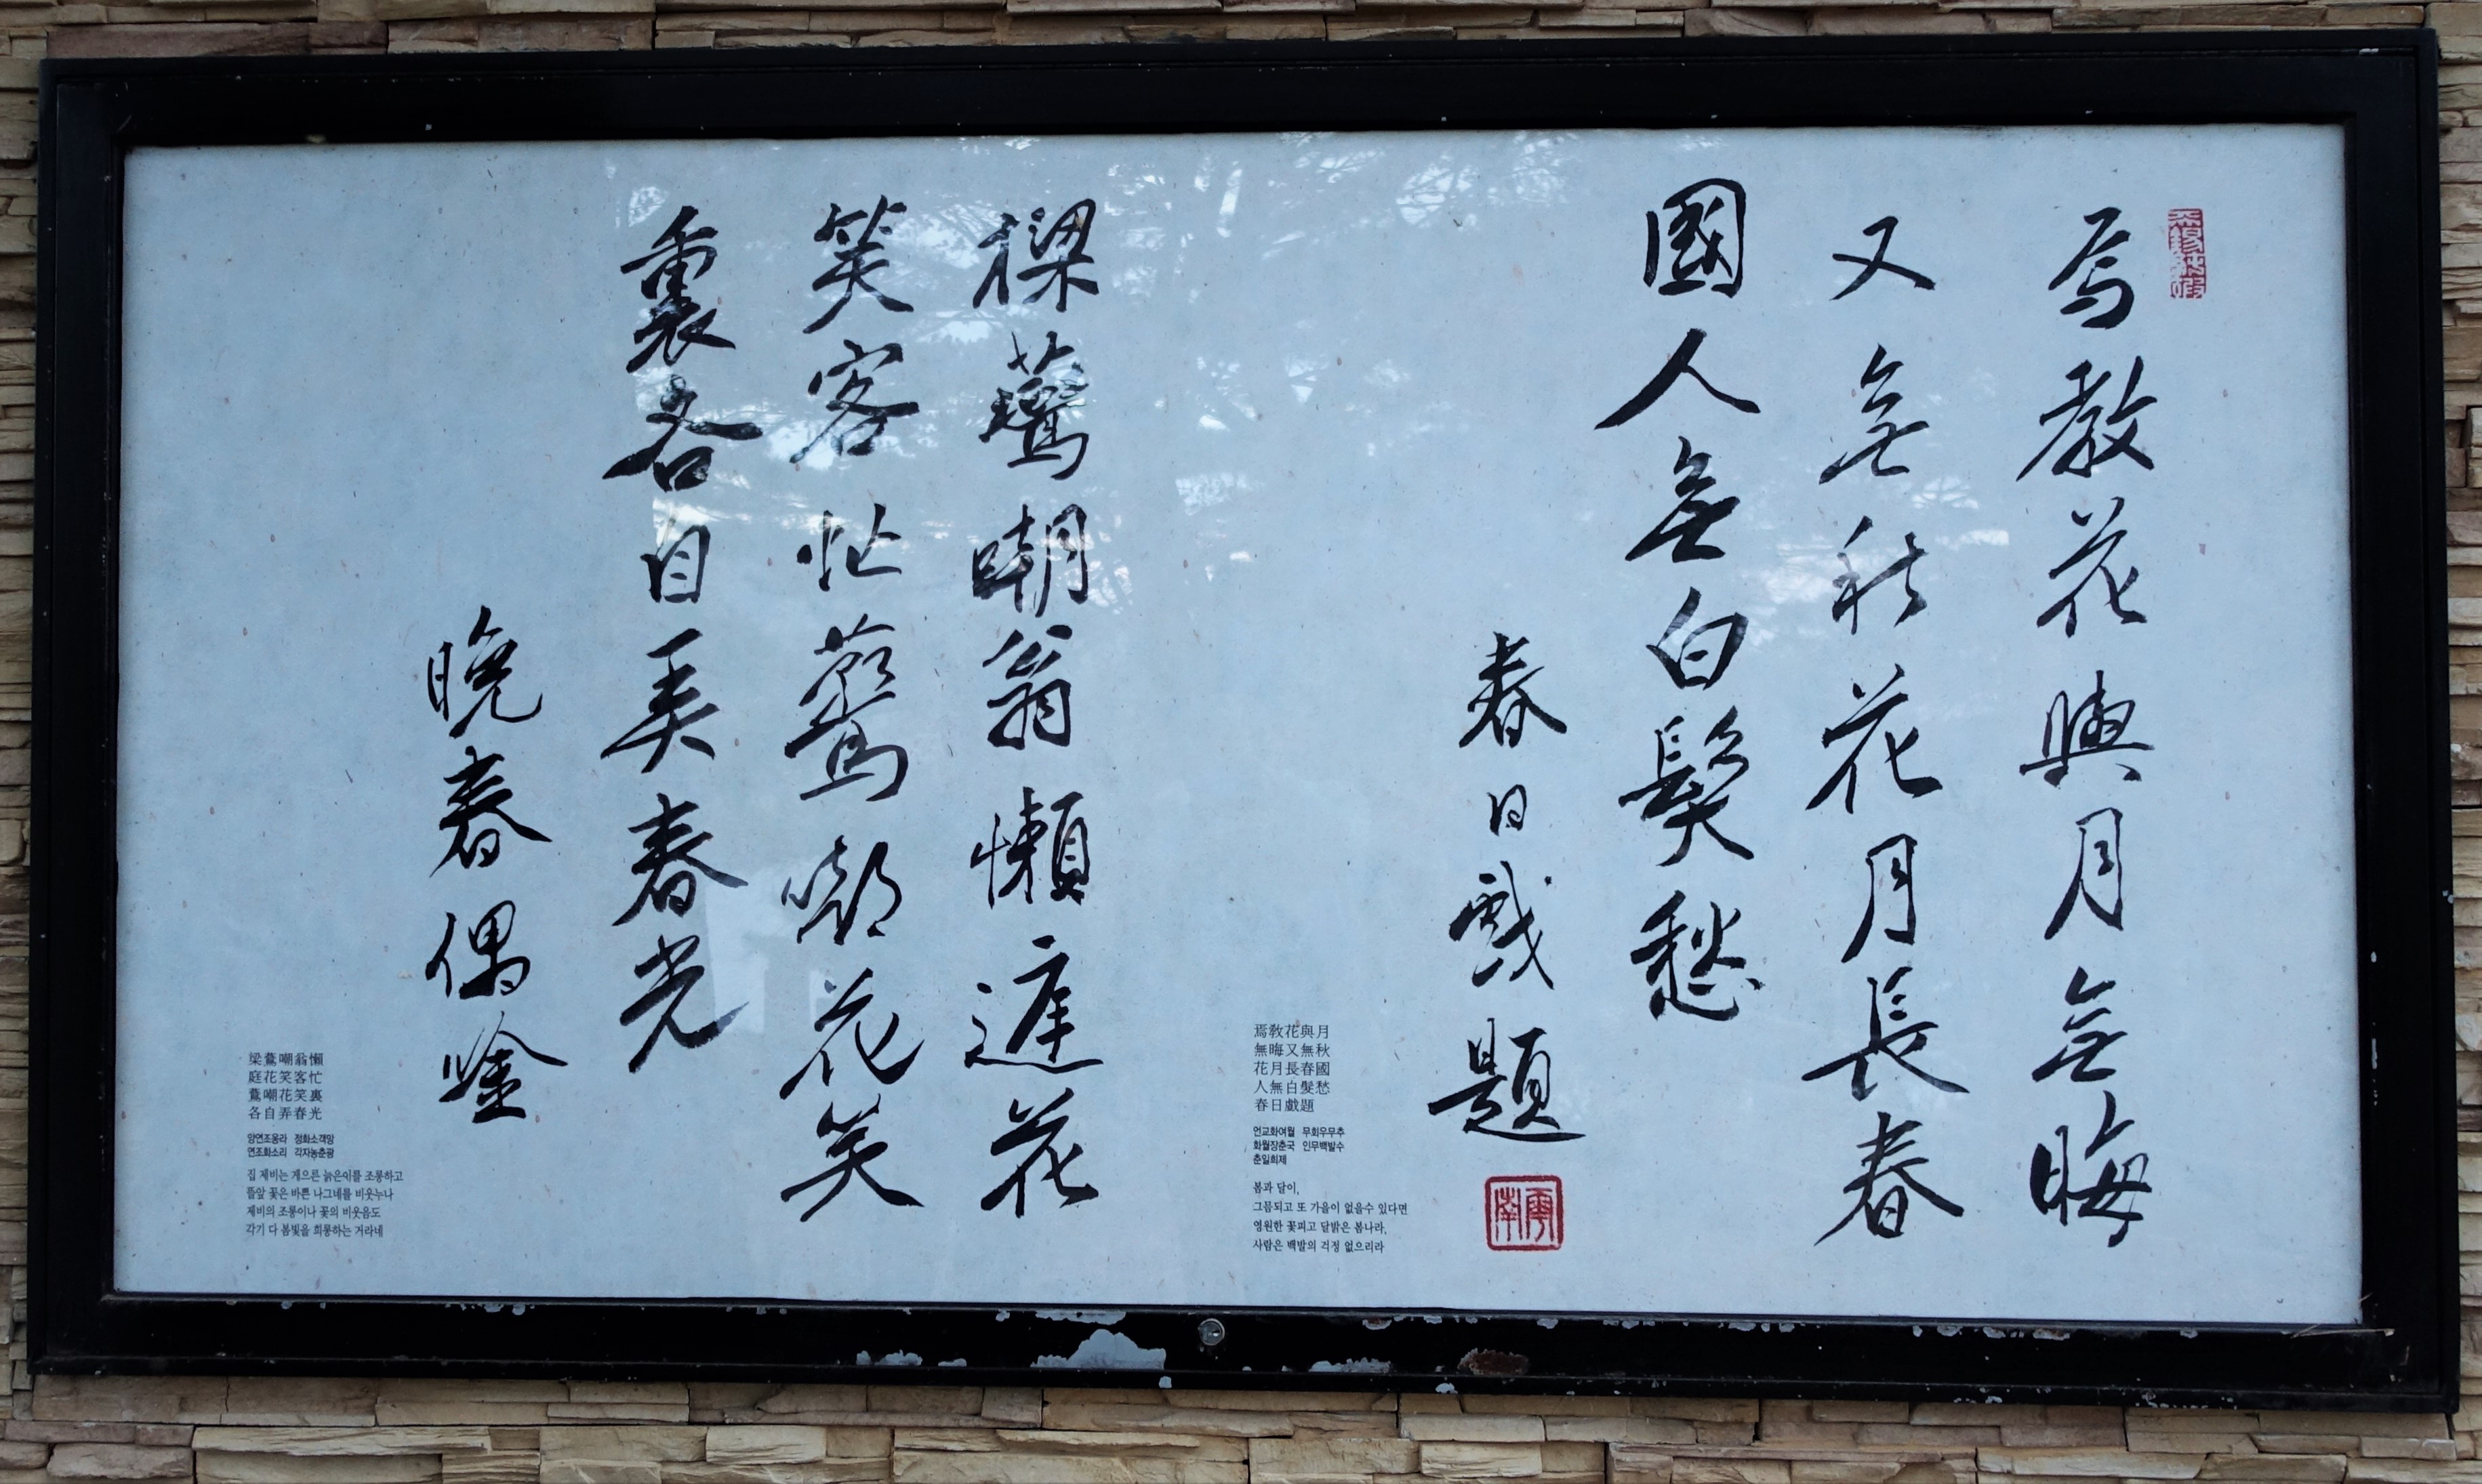 焉教花與月無晦
又無秋花月長春
國人無白髮愁
春日戱題
焉敎花與月
無晦又無秋
花月長春國
人無白髮愁
春日戱題
언교화여월 무회우무추
화월장춘국 인무백발수
춘일희제
봄과 달이,
그믐되고 또 가을이 없을수 있다면
영원한 꽃피고 달밝은 봄나라,
사람은 백발의 걱정 없으리라
樑鷰嘲翁懶遲花
笑客忙鷰嘲花笑
裏各自弄春光
晩春偶唫
梁鷰嘲翁懶
庭花笑客忙
鷰嘲花笑裏
各自弄春光
양연조옹라 정화소객망
연조화소리 각자농춘광
집 제비는 게으른 늙은이를 조롱하고
뜰앞 꽃은 바쁜 나그네를 비웃누나
제비의 조롱이나 꽃의 비웃음도
각기 다 봄빛을 희롱하는 거라네